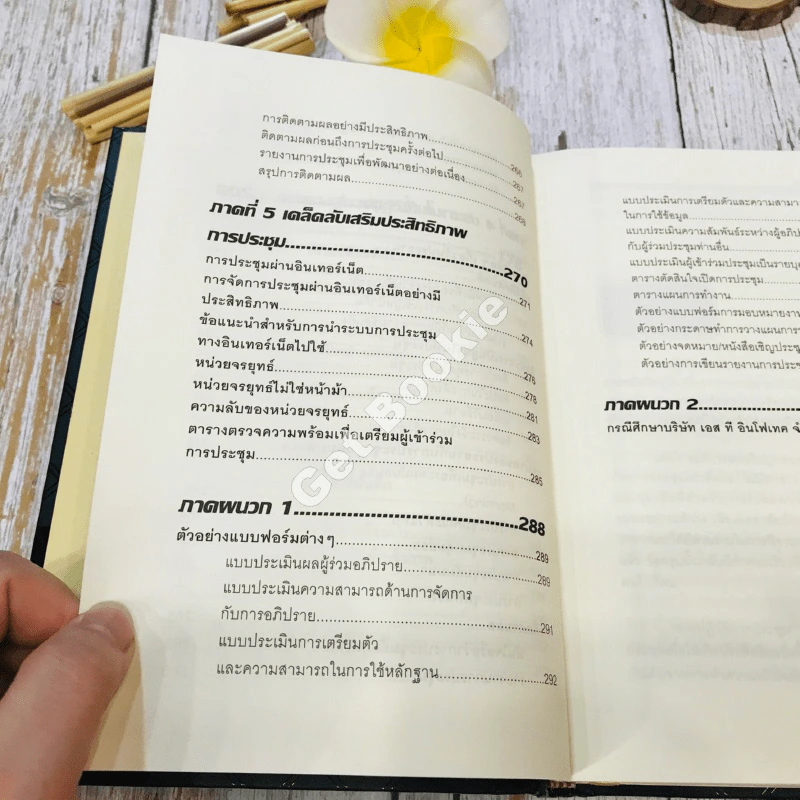 การติดตามผลอย่างมีประสิทธิภาพ....................266
ติดตามผลก่อนถึงการประชุมครั้งต่อไป....................267
รายงานการประชุมเพื่อพัฒนาอย่างต่อเนื่อง....................267
สรุปการติดตามผล....................268
ภาคที่ 5 เคล็ดลับเสริมประสิทธิภาพ
การประชุม....................270
การประชุมผ่านอินเทอร์เน็ต....................271
การจัดการประชุมผ่านอินเทอร์เน็ตอย่างมี
ประสิทธิภาพ....................274
ข้อแนะนำสำหรับการนำระบบการประชุม
ทางอินเทอร์เน็ตไปใช้....................276
หน่วยจรยุทธ์....................278
หน่วยจรยุทธ์ไม่ใช่หน้าม้า....................281
ความลับของหน่วยจรยุทธ์....................283
ตารางตรวจความพร้อมเพื่อเตรียมผู้เข้าร่วม
การประชุม....................285
ภาคผนวก 1....................288
ตัวอย่างแบบฟอร์มต่างๆ....................289
แบบประเมินผลผู้ร่วมอภิปราย....................289
แบบประเมินความสามารถด้านการจัดการ
กับการอภิปราย....................291
แบบประเมินการเตรียมตัว
และความสามารถในการใช้หลักฐาน....................292
แบบประเมินการเตรียมตัวและความสามาร
ในการใช้ข้อมูล....................
แบบประเมินความสัมพันธ์ระหว่างผู้อภิป
กับผู้ร่วมประชุมท่านอื่น....................
แบบประเมินผู้เข้าร่วมประชุมเป็นรายบุค
ตารางตัดสินใจเปิดการประชุม....................
ตารางแผนการทำงาน....................
ตัวอย่างแบบฟอร์มการมอบหมายงาน
ตัวอย่างกระดาษทำการวางแผนการ
ตัวอย่างจดหมาย/หนังสือเชิญประชุ
ตัวอย่างการเขียนรายงานการประช
ภาคผนวก 2....................
กรณีศึกษาบริษัท เอส ที อินโฟเทค จำ
Get Bookie